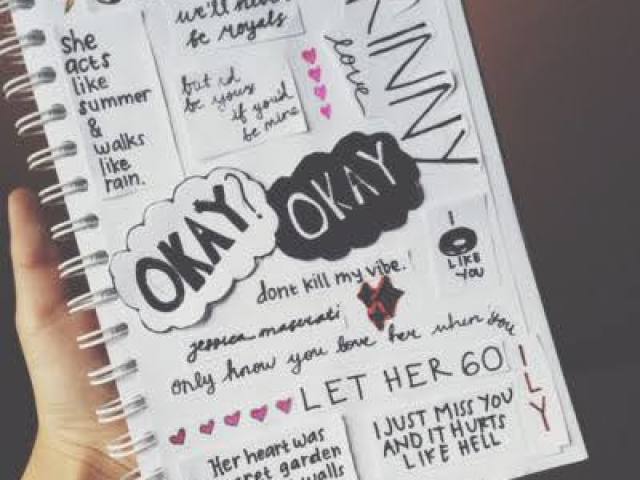 she
acts
like
summer
&
walks
like
rain.
we'll never
be royals
but i'd
be yours
if you'd
be mine
love
INNY
OKAY?
OKAY
I
LIKE
YOU
dont kill my vibe.
jessica maserati
only know you love her when you
LET HER GO
I
L
Y
Her heart was
garden
walls
I JUST MISS YOU
AND IT HURTS
LIKE HELL